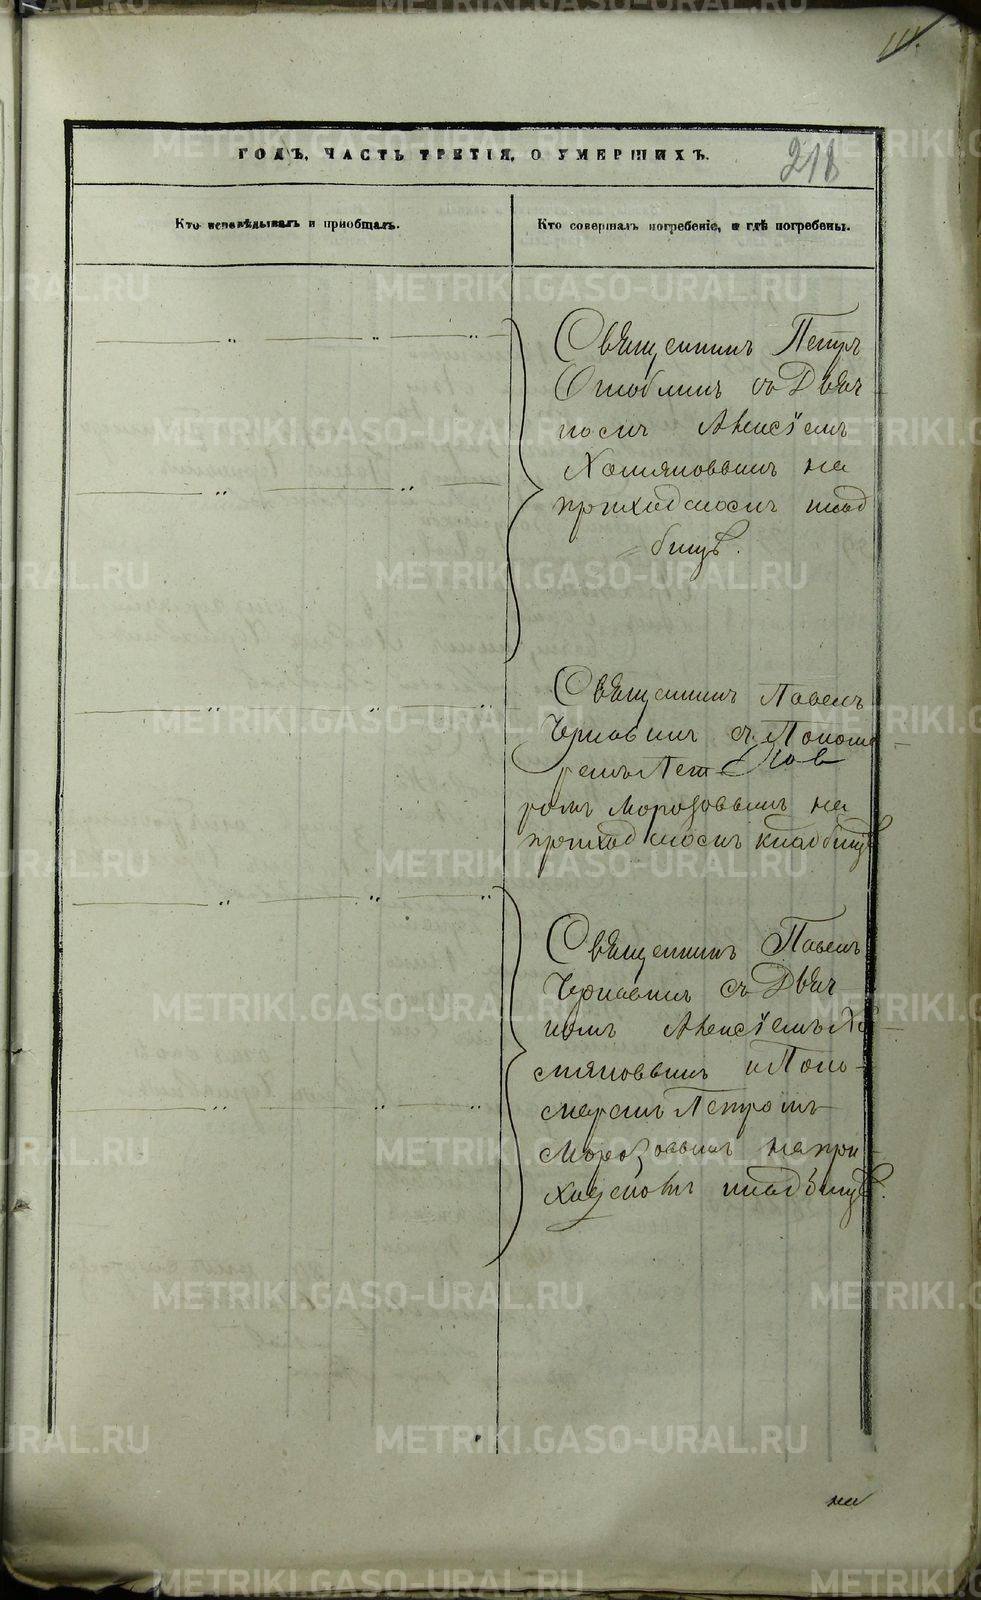 111.
ГОДЪ, ЧАСТЬ ТРЕТІЯ, О УМЕРШИХЪ.
218
Кто исповѣдывалъ и пріобщалъ.
Кто совершалъ погребеніе, и гдѣ погребены.
Священникъ Петръ
съ Діяч
комъ Алексіемъ
Хомяковымъ на
приходскомъ клад
бищѣ.
Священникъ Павелъ
Чернавинъ съ Поном
ремъ Пет
ромъ Морозовымъ на
приходскомъ кладбищѣ
Священникъ Павелъ
Чернавинъ съ Дьяч
комъ Алексіемъ Хо
мяковымъ и Поно-
маремъ Петромъ
Морозовымъ на при
ходскомъ кладбищѣ.
на
METRIKI.GASO-URAL.RU